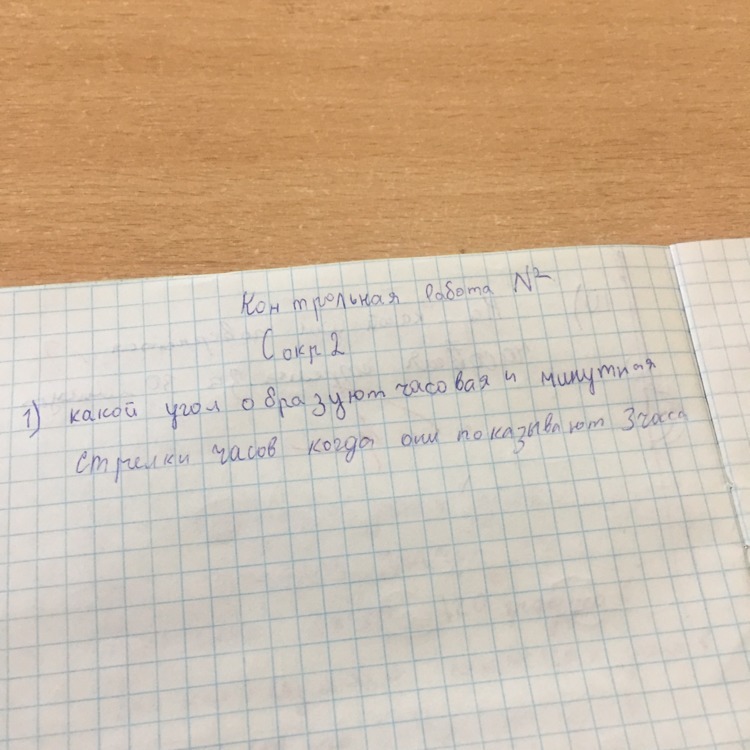 Контрольная работа №
Сокр 2
1) какой угол образуют часовая и минутная
стрелки часов когда они показывают 3 часа